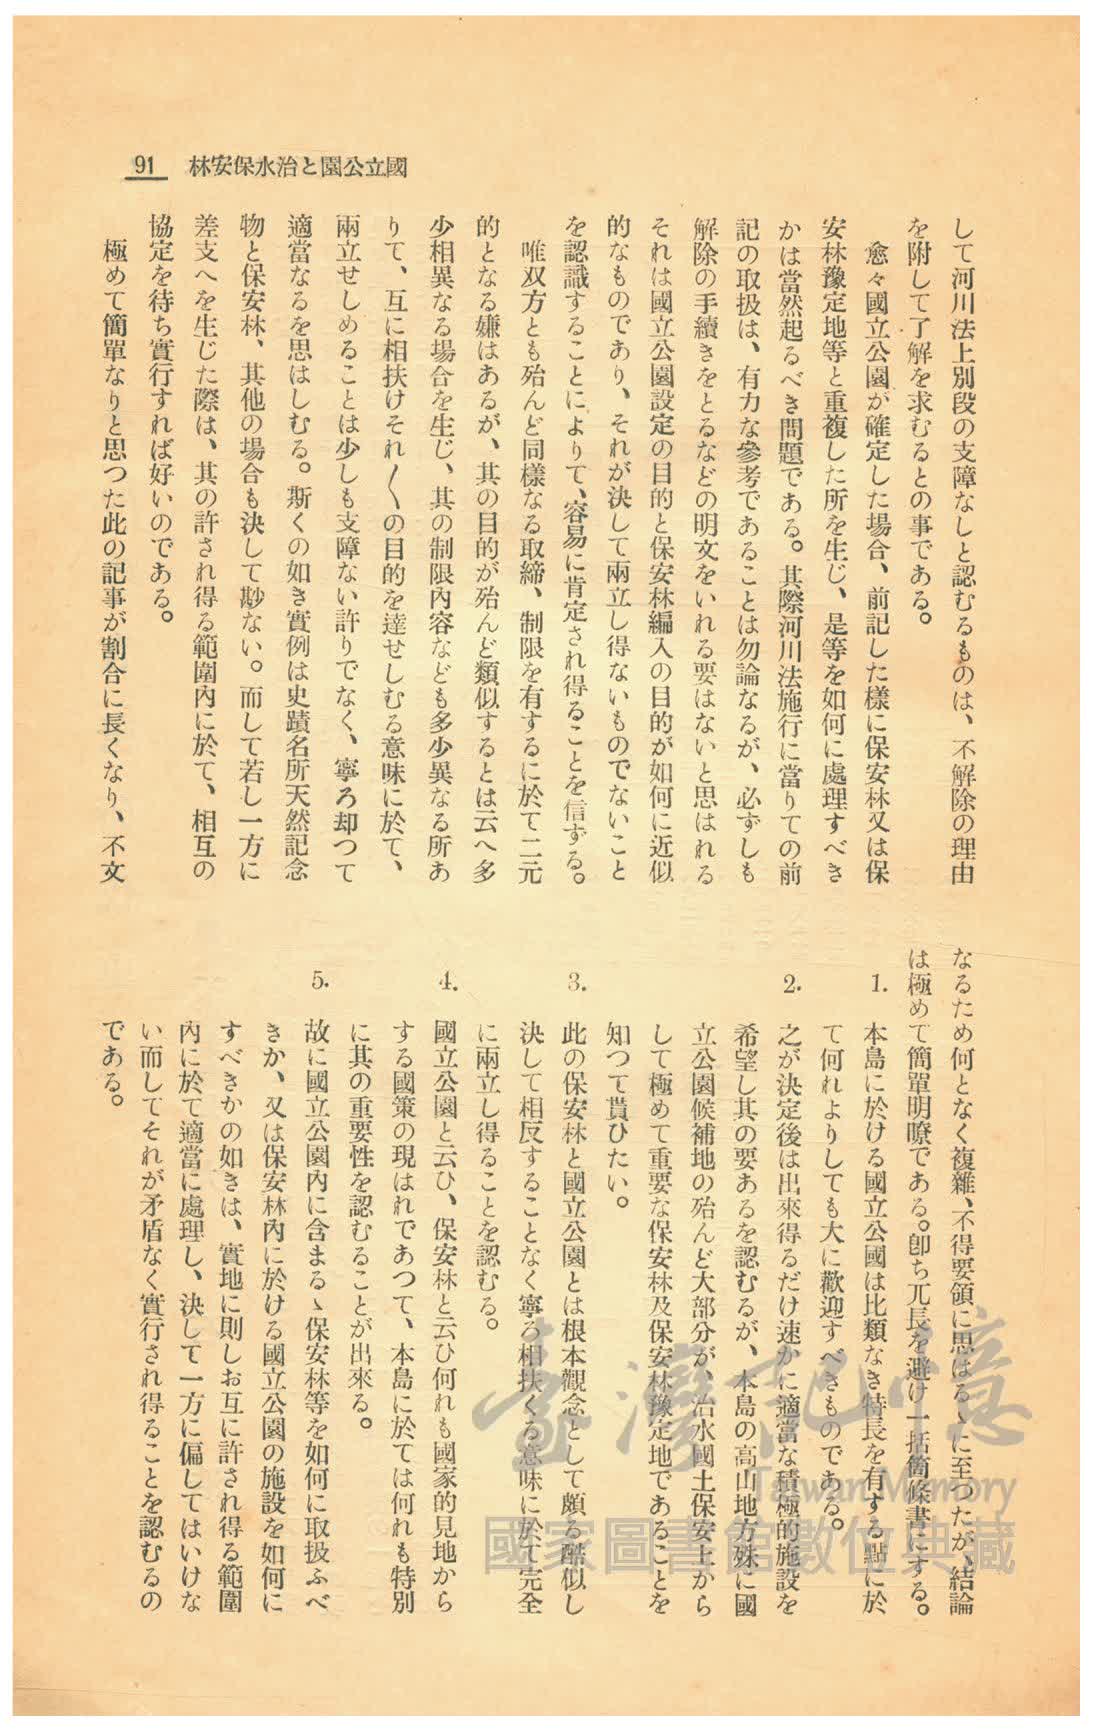 91 國立公園と治水保安林
して河川法上別段の支障なしと認むるものは、不解除の理由
を附して了解を求むるとの事である。
愈々國立公園が確定した場合、前記した樣に保安林又は保
安林豫定地等と重複した所を生じ、是等を如何に處理すべき
かは當然起るべき問題である。其際河川法施行に當りての前
記の取扱は、有力な參考であることは勿論なるが、必ずしも
解除の手續きをとるなどの明文をいれる要はないと思はれる
それは國立公園設定の目的と保安林編入の目的が如何に近似
的なものであり、それが決して兩立し得ないものでないこと
を認識することによりて、容易に肯定され得ることを信ずる。
唯双方とも殆んど同樣なる取締、制限を有するに於て二元
的となる嫌はあるが、其の目的が殆んど類似するとは云へ多
少相異なる場合を生じ、其の制限內容なども多少異なる所あ
りて、互に相扶けそれ〳〵の目的を達せしむる意味に於て、
兩立せしめることは少しも支障ない許りでなく、寧ろ却つて
適當なるを思はしむる。斯くの如き實例は史蹟名所天然記念
物と保安林、其他の場合も決して尠ない。而して若し一方に
差支へを生じた際は、其の許され得る範圍內に於て、相互の
協定を待ち實行すれば好いのである。
極めて簡單なりと思つた此の記事が割合に長くなり、不文
なるため何となく複雜、不得要領に思はるゝに至つたが、結論
は極めて簡單明瞭である。卽ち冗長を避け一括箇條書にする。
1. 本島に於ける國立公國は比類なき特長を有する點に於
て何れよりしても大に歡迎すべきものである。
2. 之が決定後は出來得るだけ速かに適當な積極的施設を
希望し其の要あるを認むるが、本島の高山地方殊に國
立公園候補地の殆んど大部分が、治水國土保安上から
して極めて重要な保安林及保安林豫定地であることを
知つて貰ひたい。
3. 此の保安林と國立公園とは根本觀念として頗る酷似し
決して相反することなく寧ろ相扶くる意味に於て完全
に兩立し得ることを認むる。
4. 國立公園と云ひ、保安林と云ひ何れも國家的見地から
する國策の現はれであつて、本島に於ては何れも特別
に其の重要性を認むることが出來る。
5. 故に國立公園內に含まるゝ保安林等を如何に取扱ふべ
きか、又は保安林內に於ける國立公園の施設を如何に
すべきかの如きは、實地に則しお互に許され得る範圍
內に於て適當に處理し、決して一方に偏してはいけな
い而してそれが矛盾なく實行され得ることを認むるの
である。
臺灣記憶
Taiwan Memory
國家圖書館數位典藏